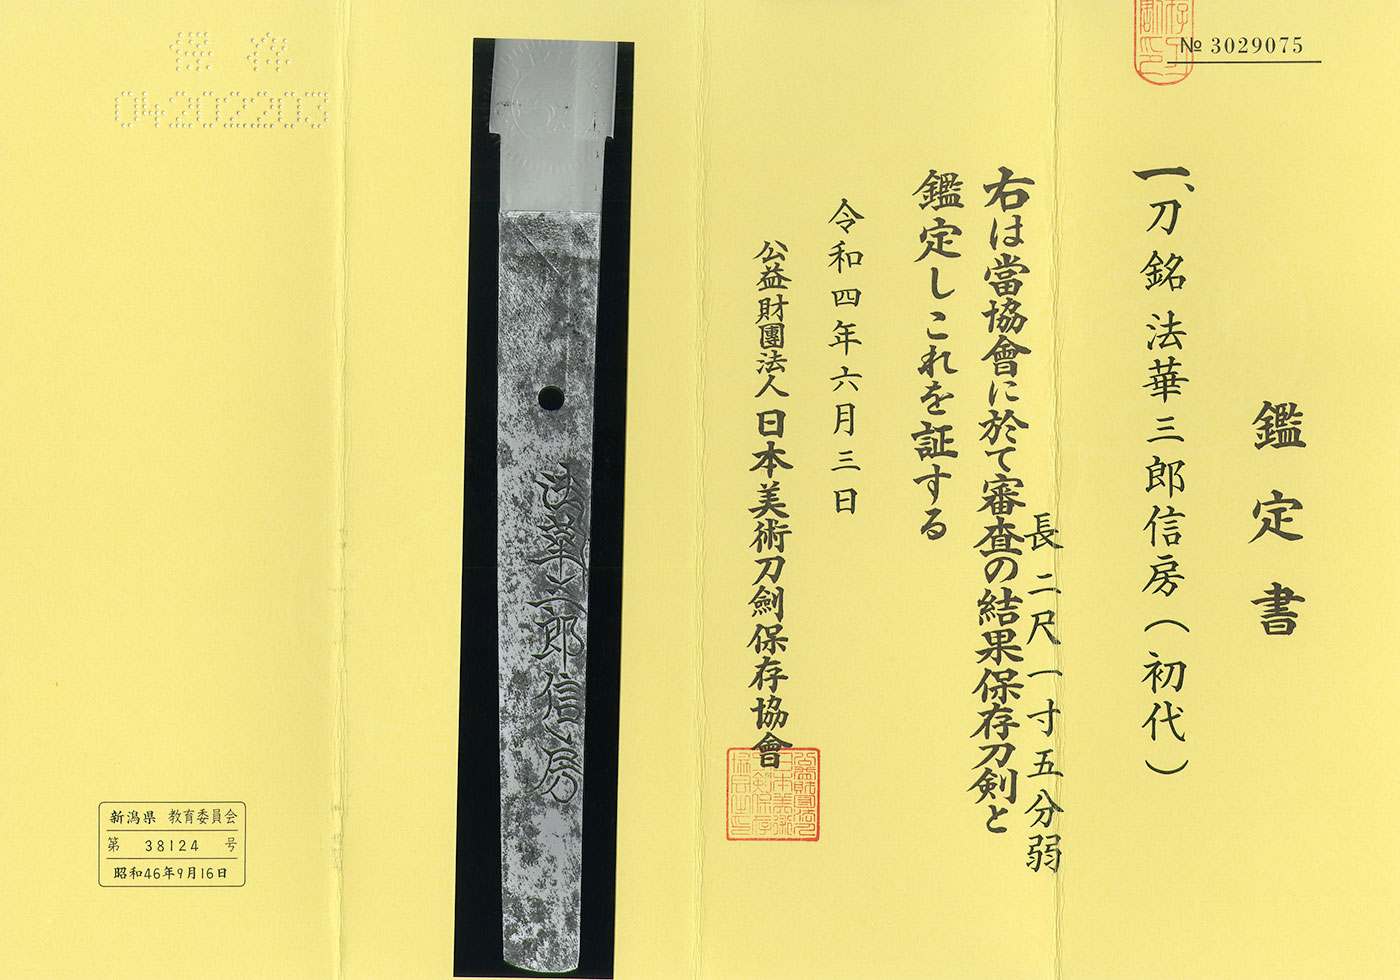 № 3029075
鑑定書
一、刀 銘 法華三郎信房(初代)
長 二尺一寸五分弱
右は當協會に於て審査の結果保存刀剣と
鑑定しこれを証する
令和四年六月三日
公益財團法人 日本美術刀劍保存協會
法華三郎信房
保存
04202203
新潟県 教育委員会
第 38124 号
昭和46年9月16日